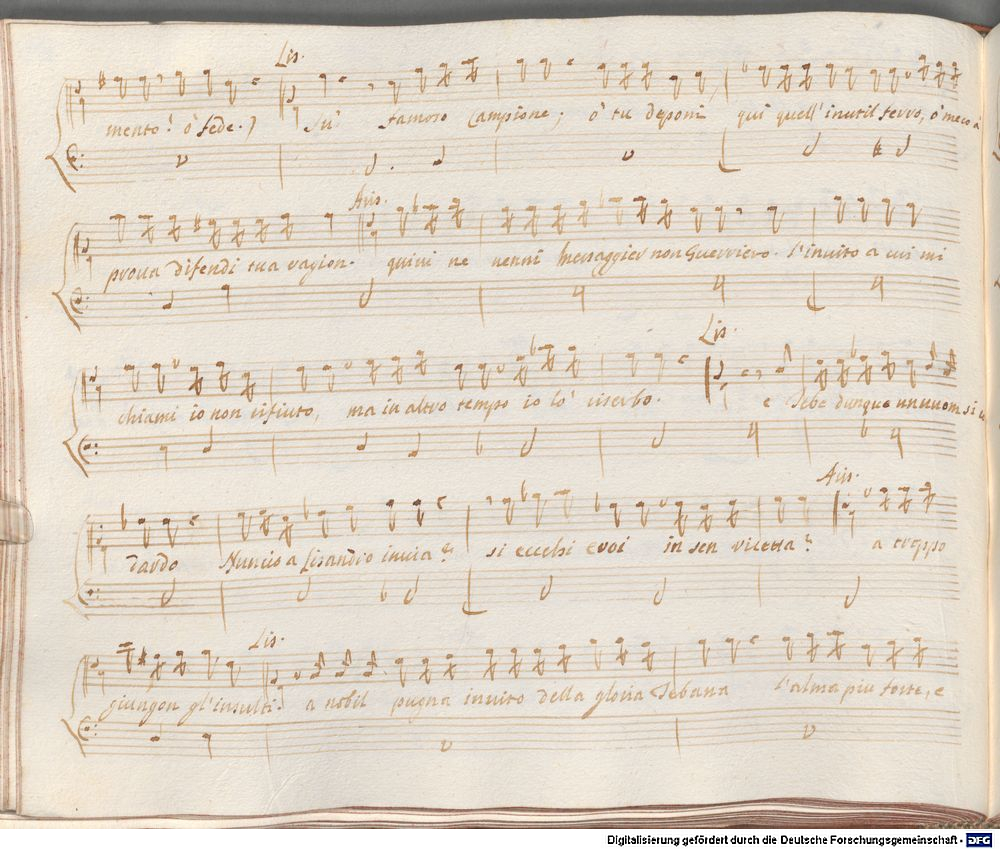 Lis.
mento! ò fede.) Sù famoso Campione; ò tu deponi qui quell'inutil ferro, ò meco à
Aris.
proua difendi tua ragion. quiui ne uenni Messaggier non Guerriero. l'inuito a cui mi
Lis.
chiami io non rifiuto, ma in altro tempo io lo riserbo. e Tebe dunque un uuom si
Aris.
tardo Nuncio a Lisandro inuia? si eccelsi eroi in sen ricetta? a troppo
Lis.
giungon gl'insulti. a nobil pugna inuito della gloria Tebana l'alma piu forte, e
Digitalisierung gefördert durch die Deutsche Forschungsgemeinschaft - DFG